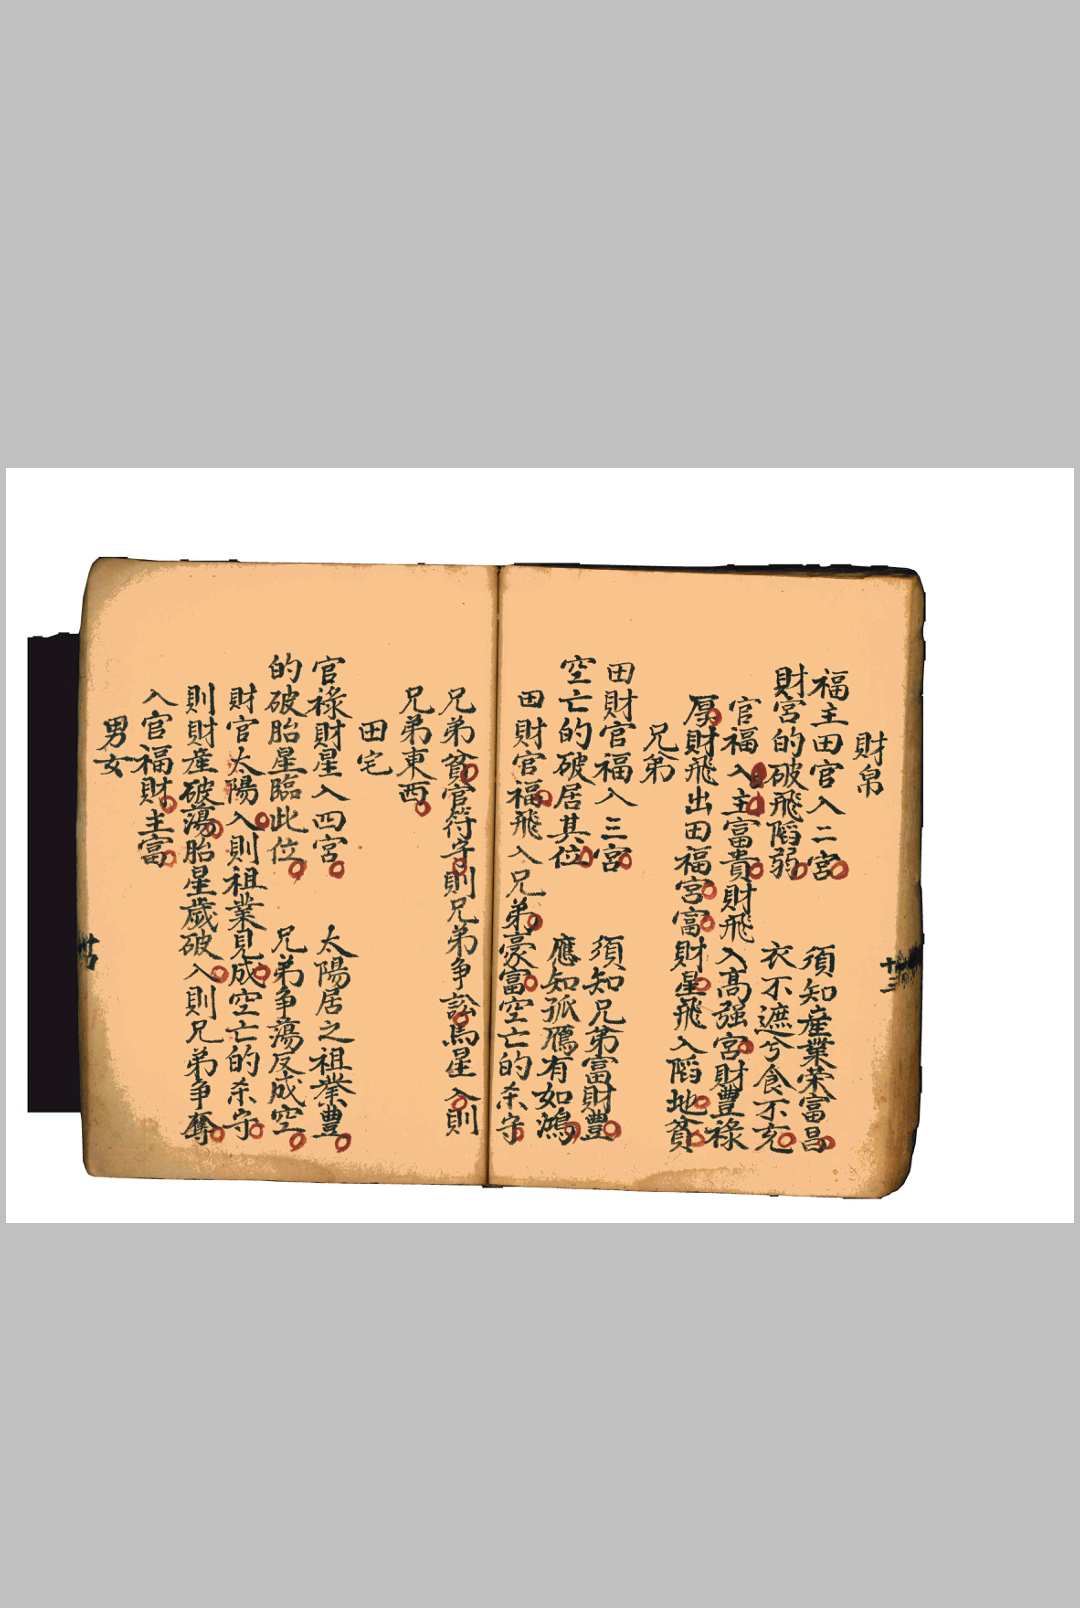 財帛
福主田官入二宮 須知産業荣富昌
財宮的破飛陷弱 衣不遮兮食不充
官福入主富貴財飛入高强宮財豐祿
厚財飛出田福宮富財星飛入陷地貧
兄弟
田財官福入三宮 須知兄弟富財豐
空亡的破居其位 應知孤鴈有如鴻
田財官福飛入兄弟豪富空亡的杀守
兄弟貧官符守則兄弟争訟馬星入則
兄弟東西
田宅
官祿財星入四宮 太陽居之祖業豊
的破胎星臨此位 兄弟争蕩反成空
財官太陽入則祖業見成空亡的杀守
則財産破蕩胎星歲破入則兄弟争奪
入官福財主富
男女